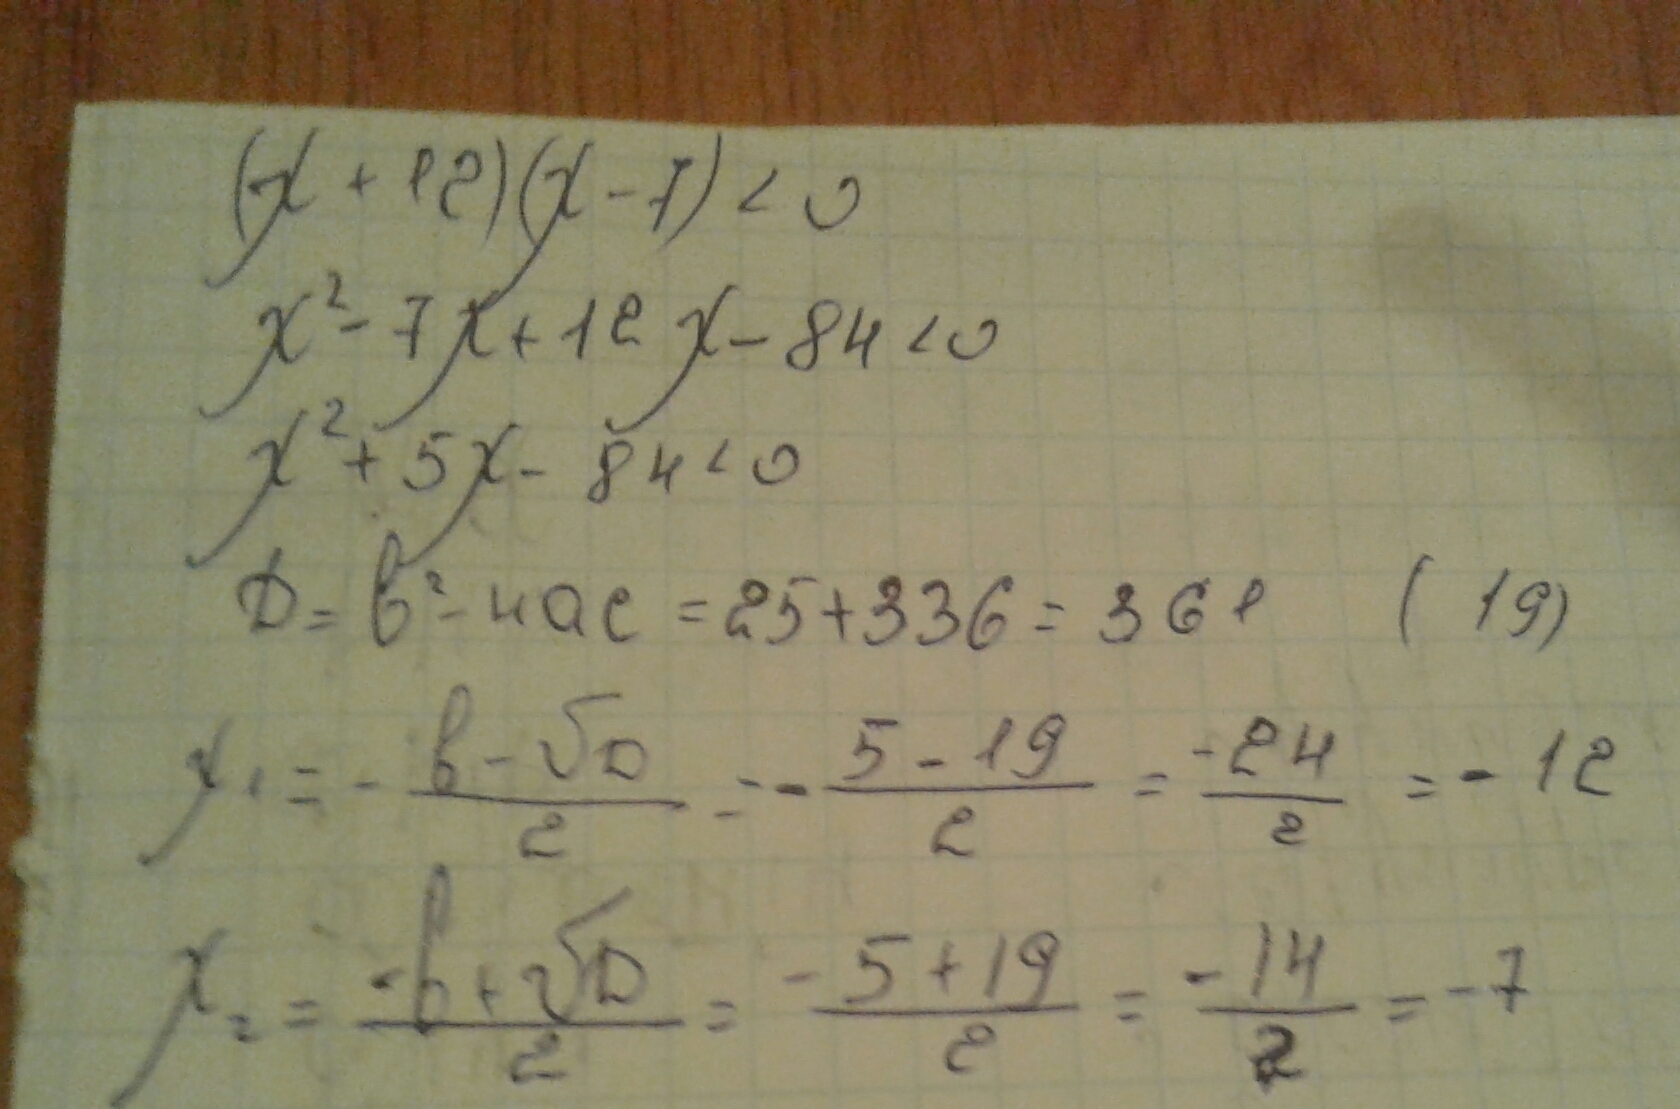 (x + 12)(x - 7) < 0
x² - 7x + 12x - 84 < 0
x² + 5x - 84 < 0
D = b² - 4ac = 25 + 336 = 361 (19)
x₁ = - (b - √D)/2 = - (5 - 19)/2 = (-24)/2 = - 12
x₂ = (-b + √D)/2 = (-5 + 19)/2 = (-14)/2 = -7